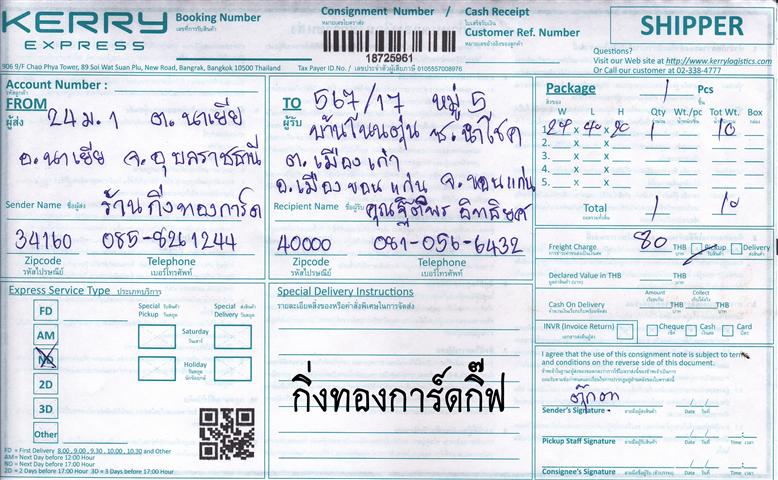 KERRY
EXPRESS
Booking Number
เลขที่การรับสินค้า
Consignment Number /
หมายเลขใบตราส่ง
Cash Receipt
ใบเสร็จรับเงิน
Customer Ref. Number
หมายเลขอ้างอิงของลูกค้า
18725961
SHIPPER
Questions?
Visit our Web site at http://www.kerrylogistics.com
Or Call our customer at 02-338-4777
906 9/F Chao Phya Tower, 89 Soi Wat Suan Plu, New Road, Bangrak, Bangkok 10500 Thailand
Tax Payer ID.No. / เลขประจำตัวผู้เสียภาษี 0105557008976
Account Number :
รหัสลูกค้า
FROM
ผู้ส่ง
24 ม.1 ต.นาเยีย
อ.นาเยีย จ.อุบลราชธานี
Sender Name ชื่อผู้ส่ง ร้านกิ่งทองการ์ด
34160 085-8261244
Zipcode Telephone
รหัสไปรษณีย์ เบอร์โทรศัพท์
TO
ผู้รับ
567/17 หมู่ 5
บ้านโนนตุ่น ซ.นำโชค
ต.เมืองเก่า
อ.เมืองขอนแก่น จ.ขอนแก่น
Recipient Name ชื่อผู้รับ
40000 081-056-6432
Zipcode Telephone
รหัสไปรษณีย์ เบอร์โทรศัพท์
Package 1 Pcs
ชิ้น
W L H Qty Wt./pc Tot Wt. Box
1. x 40 x 20 1 10
2. x x
3. x x
4. x x
5. x x
Total 1 10
Freight Charge 80 THB Pickup Delivery
บาท รับสินค้า ส่งสินค้า
Declared Value in THB THB
บาท
Amount Collect
Cash On Delivery THB THB
บาท บาท
INVR (Invoice Return) Cheque Cash Card
เช็ค เงินสด บัตร
I agree that the use of this consignment note is subject to terms
and conditions on the reverse side of this document.
ตุ๊กตา
Sender's Signature ลายมือชื่อผู้ส่ง Date วันที่
Pickup Staff Signature Date วันที่ Time เวลา
Consignee's Signature Date วันที่ Time เวลา
Express Service Type ประเภทบริการ
FD
AM
ND
2D
3D
Other
Special Pickup รับสินค้า วันหยุด
Special Delivery ส่งสินค้า วันหยุด
Saturday
วันเสาร์
Holiday
วันหยุด
นักขัตฤกษ์
FD = First Delivery 8.00 , 9.00 , 9.30 , 10.00 , 10.30 and Other
AM= Next Day before 12:00 Hour
ND = Next Day before 17:00 Hour
2D = 2 Days before 17:00 Hour 3D = 3 Days before 17:00 Hour
Special Delivery Instructions
รายละเอียดสิ่งของหรือคำสั่งพิเศษในการจัดส่ง
กิ่งทองการ์ดกิ๊ฟ